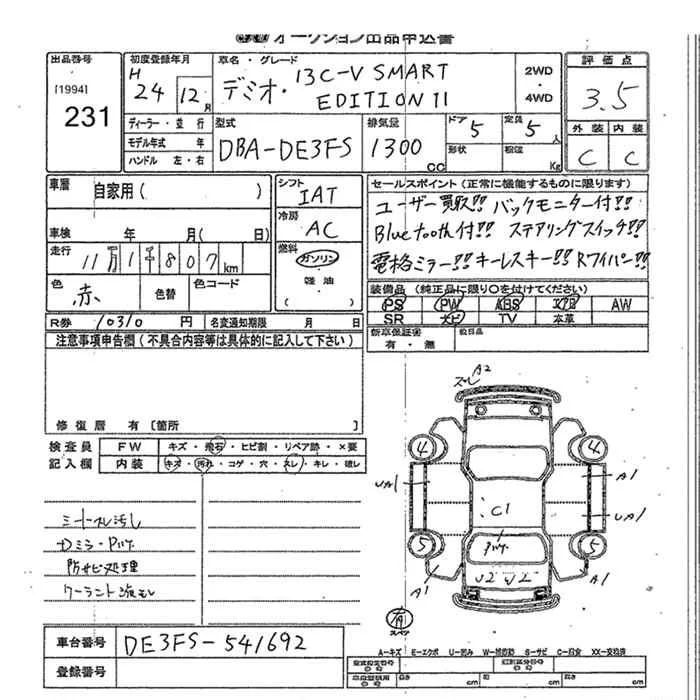 オークション出品申込書
出品番号
[1994]
231
初度登録年月
H
24年 12月
車名・グレード
デミオ・ 13C-V SMART
EDITION II
2WD
・
4WD
評価点
3.5
外装 内装
C C
ディーラー・並行
モデル年式 年
ハンドル 左・右
型式
DBA-DE3FS
排気量
1300
cc
ドア 5
形状
定員 5 人
積載 Kg
車歴
自家用( )
車検 年 月( 日)
走行
11万1千807km
色
赤
色替
色コード
シフト
IAT
冷房
AC
燃料
ガソリン
軽油
セールスポイント(正常に機能するものに限ります)
ユーザー買取!! バックモニター付!!
Bluetooth付!! ステアリングスイッチ!!
電格ミラー!! キーレスキー!! Rワイパー!!
装備品(純正品に限り○を付けてください)
PS PW ABS エアB AW
SR ナビ TV 本革
新車保証書
有・無
R券 10310 円
名変通知期限 月 日
注意事項申告欄(不具合内容等は具体的に記入して下さい)
修復歴 有[箇所 ]
検査員
記入欄
FW キズ・飛石・ヒビ割・リペア跡・×要
内装 キズ・汚れ・コゲ・穴・スレ・キレ・破レ
シートスレ汚し
Dミラ・Pハゲ
防サビ処理
クーラント流モレ
A2
スレ
4
4
A1
UA1
UA1
C1
5
5
A1
A1
U2
有
スペア
車台番号 DE3FS-541692
登録番号
A-キズ E-エクボ U-凹み W-補修跡 S-サビ C-腐食 XX-交換済
型式指定番号
類別区分番号
長さ cm
幅 cm
高さ cm